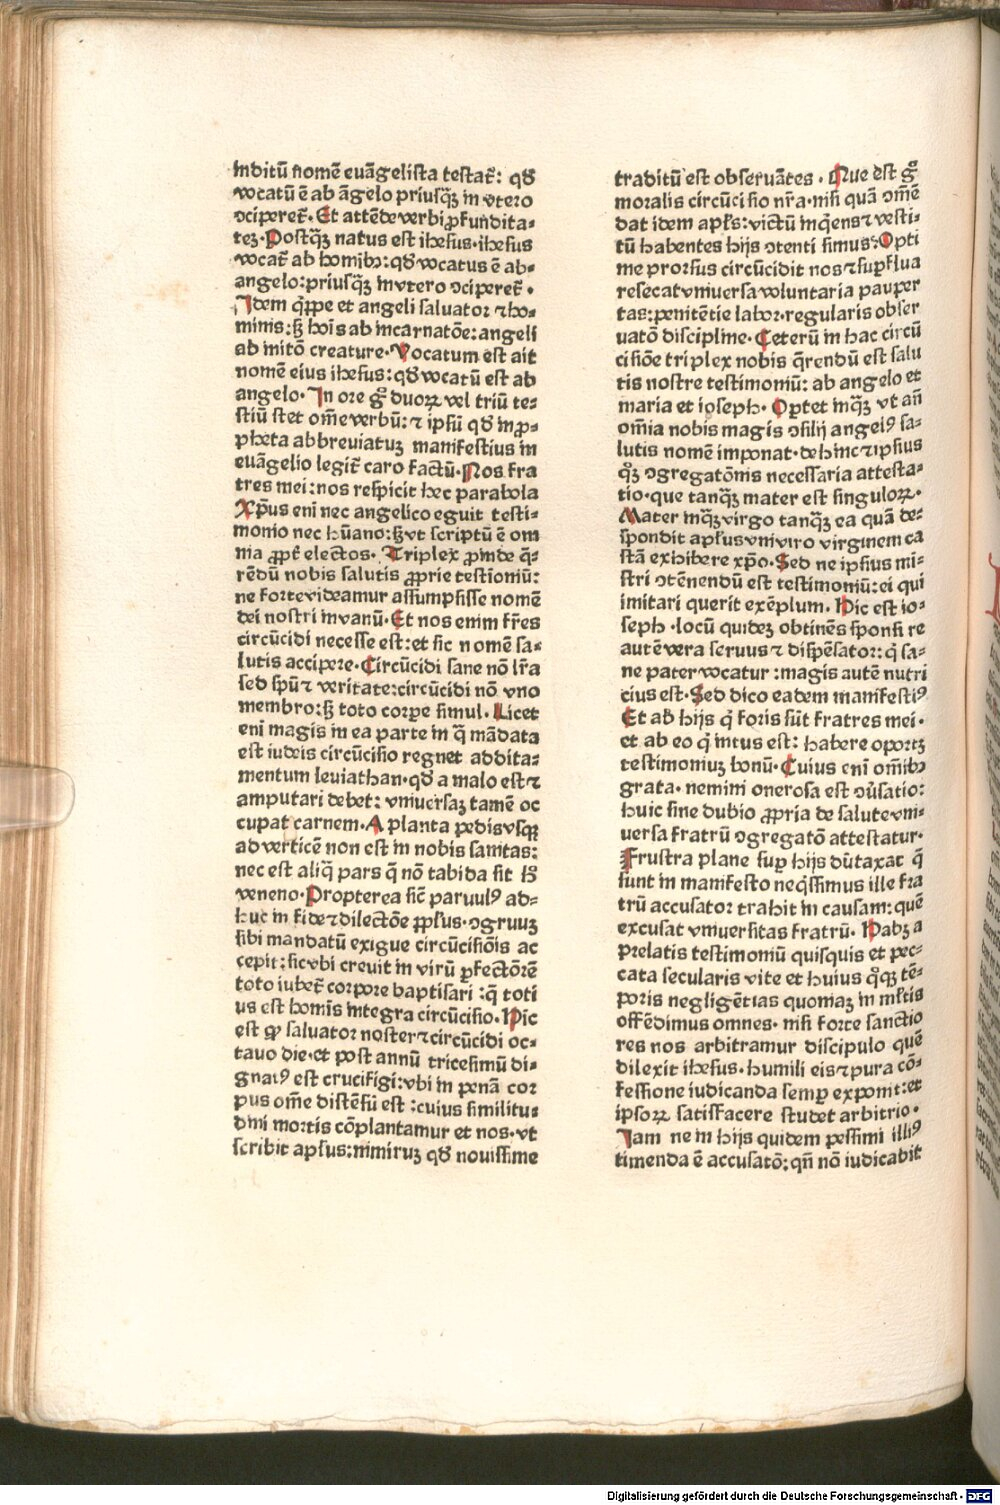 inditū nomē euāgelista testat᷑: qđ
vocatū ē ab āgelo priusq̄ꝫ in vtero
ↄciperet᷑. Et attēde verbi ꝓfundita-
teꝫ. Postq̄ꝫ natus est ihesus. ihesus
vocat᷑ ab homibꝫ: qđ vocatus ē ab-
angelo: priusq̄ꝫ in vtero ↄciperet᷑.
Idem q̄ppe et angeli saluator ⁊ ho-
minis: sꝫ hoīs ab incarnatōe: angeli
ab initō creature. Vocatum est ait
nomē eius ihesus: qđ vocatū est ab
angelo. In ore gͦ duoꝝ vel triū te-
stiū stet om̄e verbū: ⁊ ipsū qđ in ꝓ-
pheta abbreviatuꝫ manifestius in
euāgelio legit᷑ caro factū. Nos fra
tres mei: nos respicit hec parabola
Xp̄us eni nec angelico eguit testi-
monio nec hūano: sꝫ vt scriptū ē om
nia ꝓpt᷑ electos. Triplex ꝓinde q̄-
rēdū nobis salutis ꝓprie testioniū:
ne forte videamur assumpsisse nomē
dei nostri in vanū. Et nos enim fr̄es
circūcidi necesse est: et sic nomē sa-
lutis accipere. Circūcidi sane nō lr̄a
sed spū ⁊ veritate: circūcidi nō vno
membro: sꝫ toto corpe simul. Licet
enī magis in ea parte in q̄ mādata
est iudeis circūcisio regnet addita-
mentum leuiathan. qđ a malo est ⁊
amputari debet: vniuersaꝫ tamē oc
cupat carnem. A planta pedis vsqꝫ
ad verticē non est in nobis sanitas:
nec est aliq̄ pars q̄ nō tabida sit h̄
veneno. Propterea sic̄ paruulꝰ ad-
huc in fide ⁊ dilectōe ꝓpsus. ↄgruuꝫ
sibi mandatū exigue circūcisiōis ac
cepit: sic vbi creuit in virū ꝑfectōrē
toto iubet᷑ corpore baptisari: q̄ toti
us est homīs integra circūcisio. Hic
est ꝙ saluator noster ⁊ circūcidi oc-
tauo die. et post annū tricesimū di-
gnatꝰ est crucifigi: vbi in penā cor
pus om̄e distēsū est: cuius similitu-
dīni mortis cōplantamur et nos. vt
scribit apl̄us: nimiruꝫ qđ nouissime
traditū est obseruātes. Que est gͦ
moralis circūcisio nr̄a. nisi quā ↄmē
dat idem apl̄s: victū inq̄ens ⁊ vesti-
tū habentes hijs ↄtenti simus: Opti
me prorsus circūcidit nos ⁊ suꝑflua
resecat vniuersa voluntaria pauper
tas: penitētie labor. regularis obser
uatō discipline. Ceterū in hac circū
cisiōe triplex nobis q̄rendū est salu
tis nostre testimoniū: ab angelo et
maria et ioseph. Oꝑtet inq̄ꝫ vt an̄
om̄ia nobis magis ↄsilij angelꝰ sa-
lutis nomē imponat. dehinc ⁊ ipsius
qͦꝫ ↄgregatōnis necessaria attesta-
tio. que tanq̄ꝫ mater est singuloꝝ.
Mater inq̄ꝫ virgo tanq̄ꝫ ea quā de-
spondit apl̄us vni viro virginem ca
stā exhibere xp̄o. Sed ne ipsius mi-
stri ↄtēnendū est testimoniū: ei qui
imitari querit exēplum. Hic est io-
seph. locū quideꝫ obtinēs sponsi re
autē vera seruus ⁊ dispēsator: q̇ sa-
ne pater vocatur: magis autē nutri
cius est. Sed dico eadem manifestiꝰ
Et ab hijs q̇ foris sūt fratres mei.
et ab eo q̇ intus est: habere oportꝫ
testimoniuꝫ bonū. Cuius enī om̄ibꝫ
grata. nemini onerosa est ↄūsatio:
huic sine dubio ꝓpria de salute vni-
uersa fratrū ↄgregatō attestatur.
Frustra plane suꝑ hijs dūtaxat q̄
sunt in manifesto neq̄ssimus ille fra
trū accusator trahit in causam: quē
excusat vniuersitas fratrū. Habꝫ a
prelatis testimoniū quisquis et pec-
cata secularis vite et huius qͦqꝫ tē-
poris negligētias quoniaꝫ in ml̄tis
offēdimus omnes. nisi forte sanctio
res nos arbitramur discipulo quē
dilexit ihesus. humili eis ⁊ pura cō-
fessione iudicanda semꝑ exponit: et
ipsoꝝ satisfacere studet arbitrio.
Iam ne in hijs quidem pessimi illiꝰ
timenda ē accusatō: qn̄ nō iudicabit
Digitalisierung gefördert durch die Deutsche Forschungsgemeinschaft - DFG